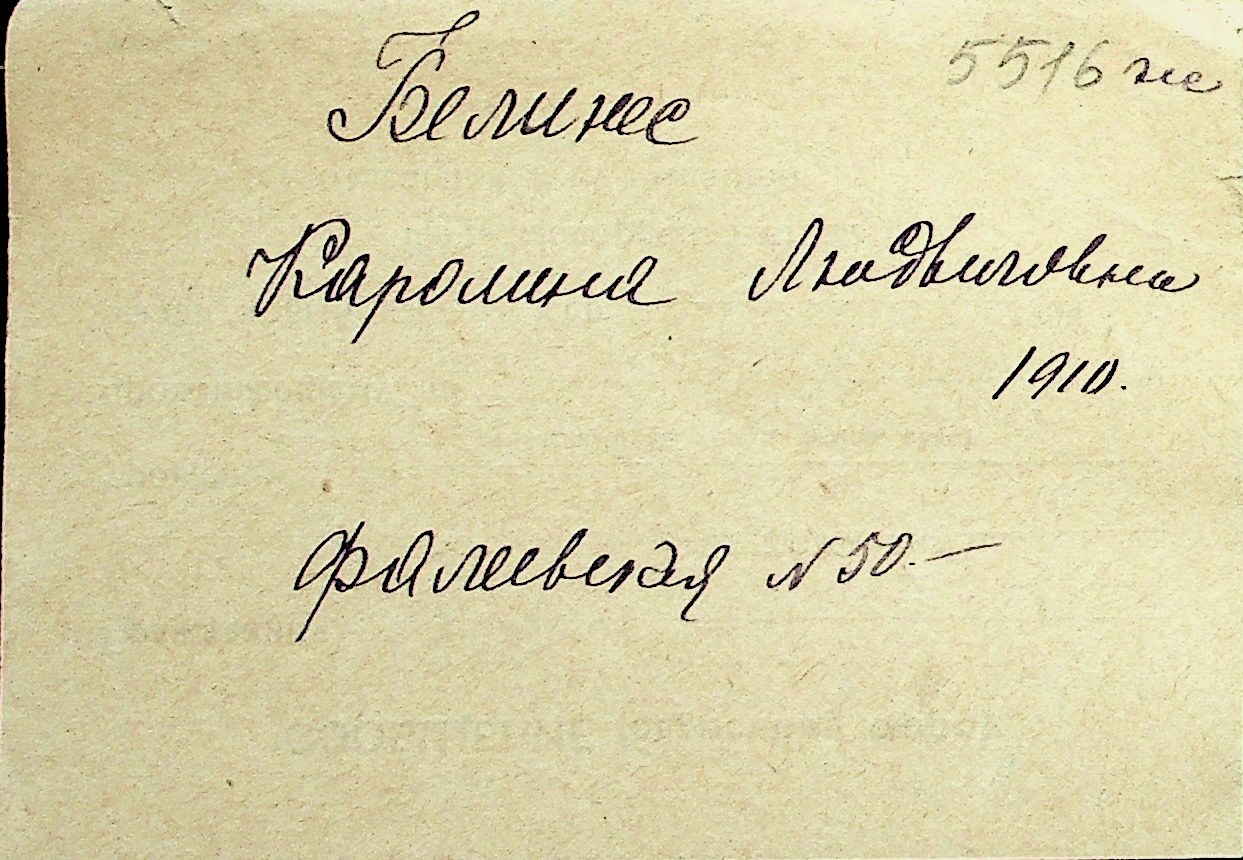 5516 же
Белинес
Каролина Людвиговна
1910.
Фалеевская N 50. —